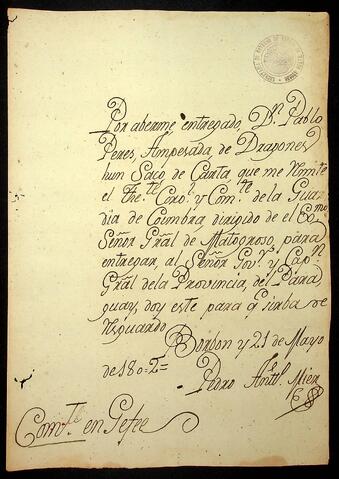 Por aberme entregado Dn. Pablo
Peres, Amperada, de Dragones,
hun Saco, de Carta que me Remite
el The.te Coro.l y Com.te de la Gua
dia de Coimbra, dirigido de el Exmo
Señor Gràl de Matogroso, para
entregar, al Señor Gov.r y Cap.n
Gràl de la Provincia, del Para
guay, doy este para q sirba de
Resguardo
Borbon y 21 de Mayo
de 1802=
Pedro Ant.o Mier
Com.te en Gefe